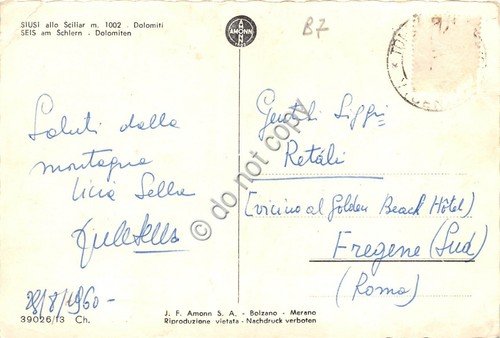 SIUSI allo Sciliar m. 1002 - Dolomiti
SEIS am Schlern - Dolomiten
AMONN
B7
Saluti dalla
montagna
Licia Sella
Gentili Sigg.
Retáli
(vicino al Golden Beach Hôtel)
Fregene (Sud)
(Roma)
28/8/1960 -
39026/13 Ch.
J. F. Amonn S. A. - Bolzano - Merano
Riproduzione vietata - Nachdruck verboten
do not copy